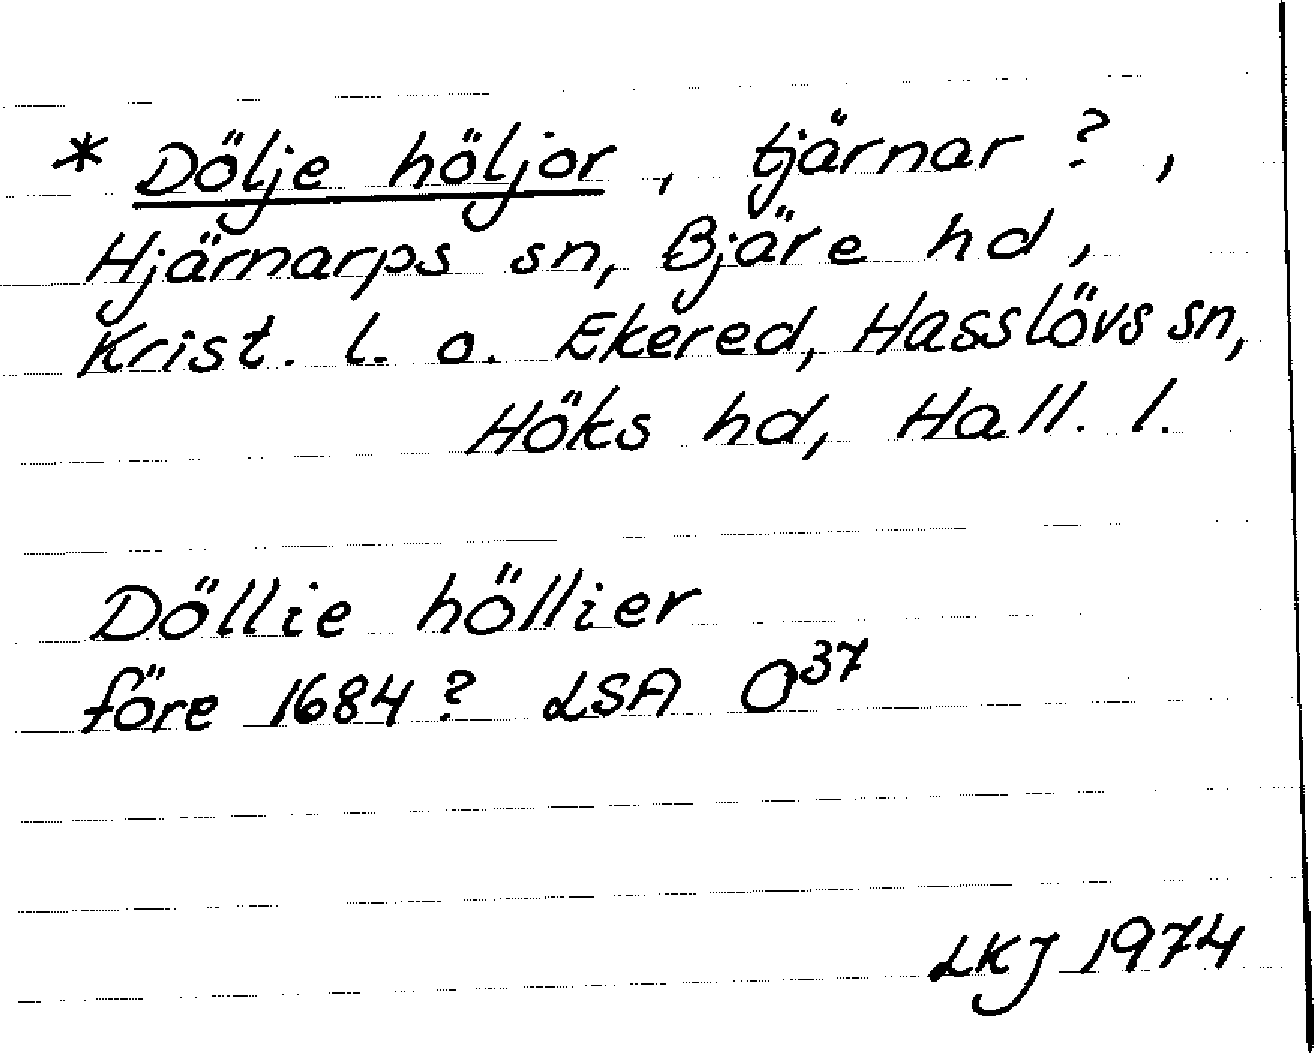 * Dölje höljor, tjärnar ?,
Hjärnarps sn, Bjäre hd,
Krist. l. o. Ekered, Hasslövs sn,
Höks hd, Hall. l.
Döllie höllier
före 1684 ? LSA O³⁷
LKJ 1974